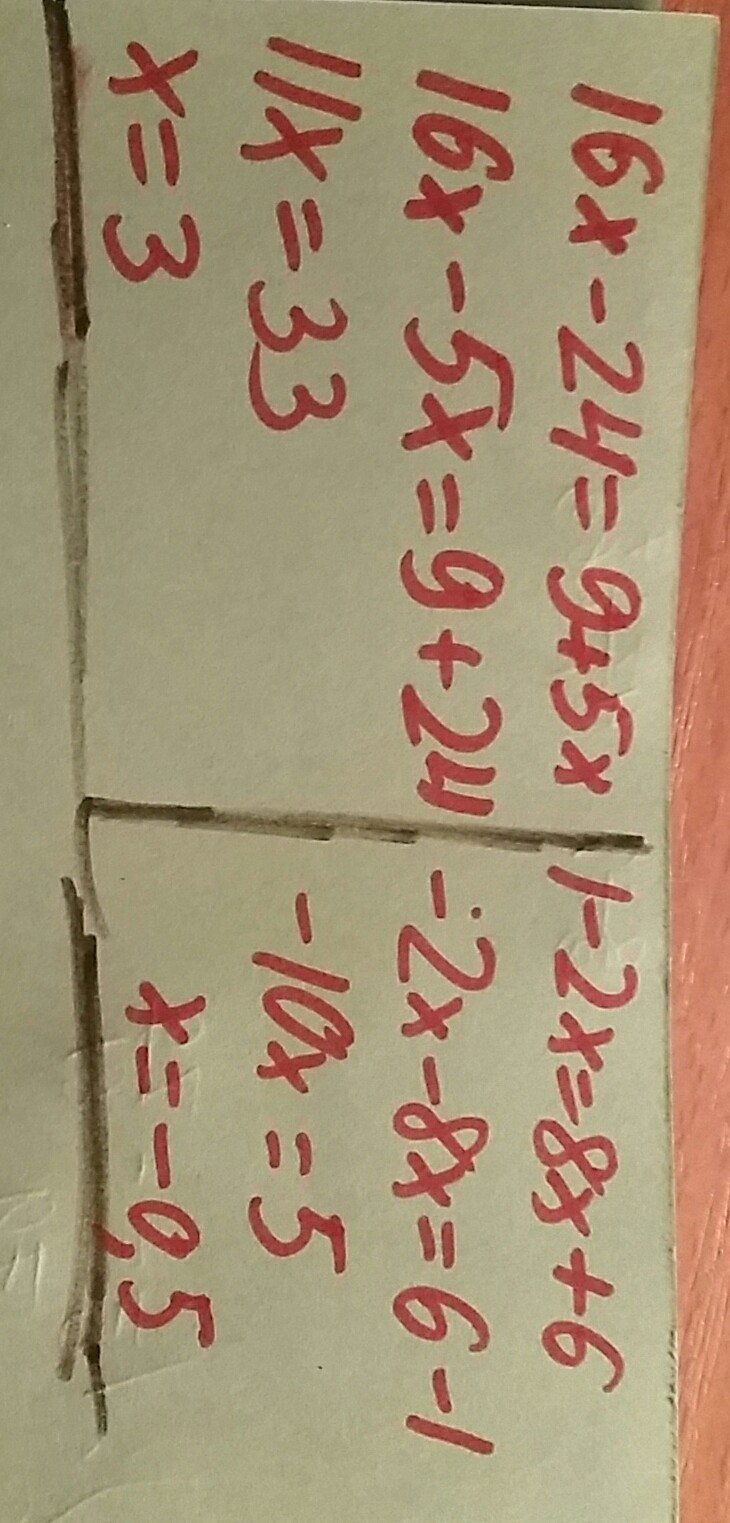 16x-24=9+5x
16x-5x=9+24
11x=33
x=3
1-2x=8x+6
-2x-8x=6-1
-10x=5
x=-0,5